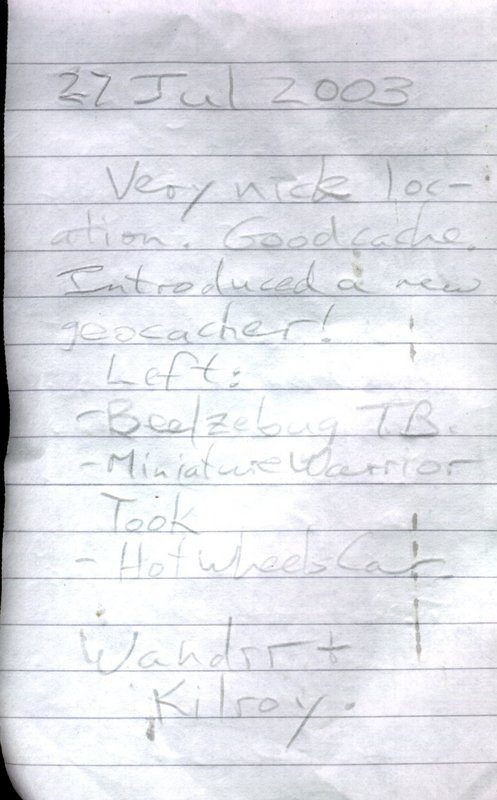 27 Jul 2003
Very nick loc-
ation. Good cache.
Introduced a new
geocacher!
Left:
- Beelzebug T.B.
- Miniature Warrior
Took
- Hot Wheels Car
Wandrr +
Kilroy.